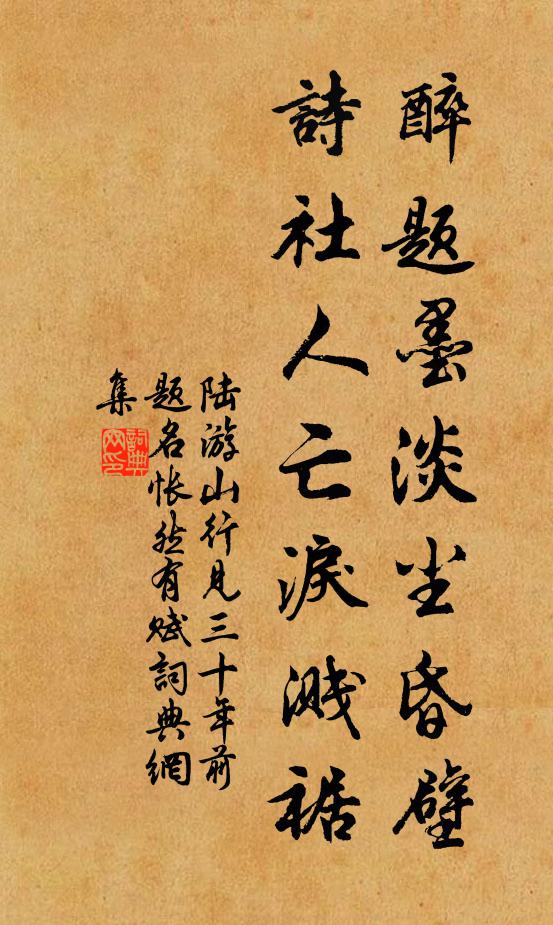 醉题墨淡尘昏壁
詩社人亡淚溅裾
陆游山行见三十年前
题名怅然有赋詞典網
集
詞典网印